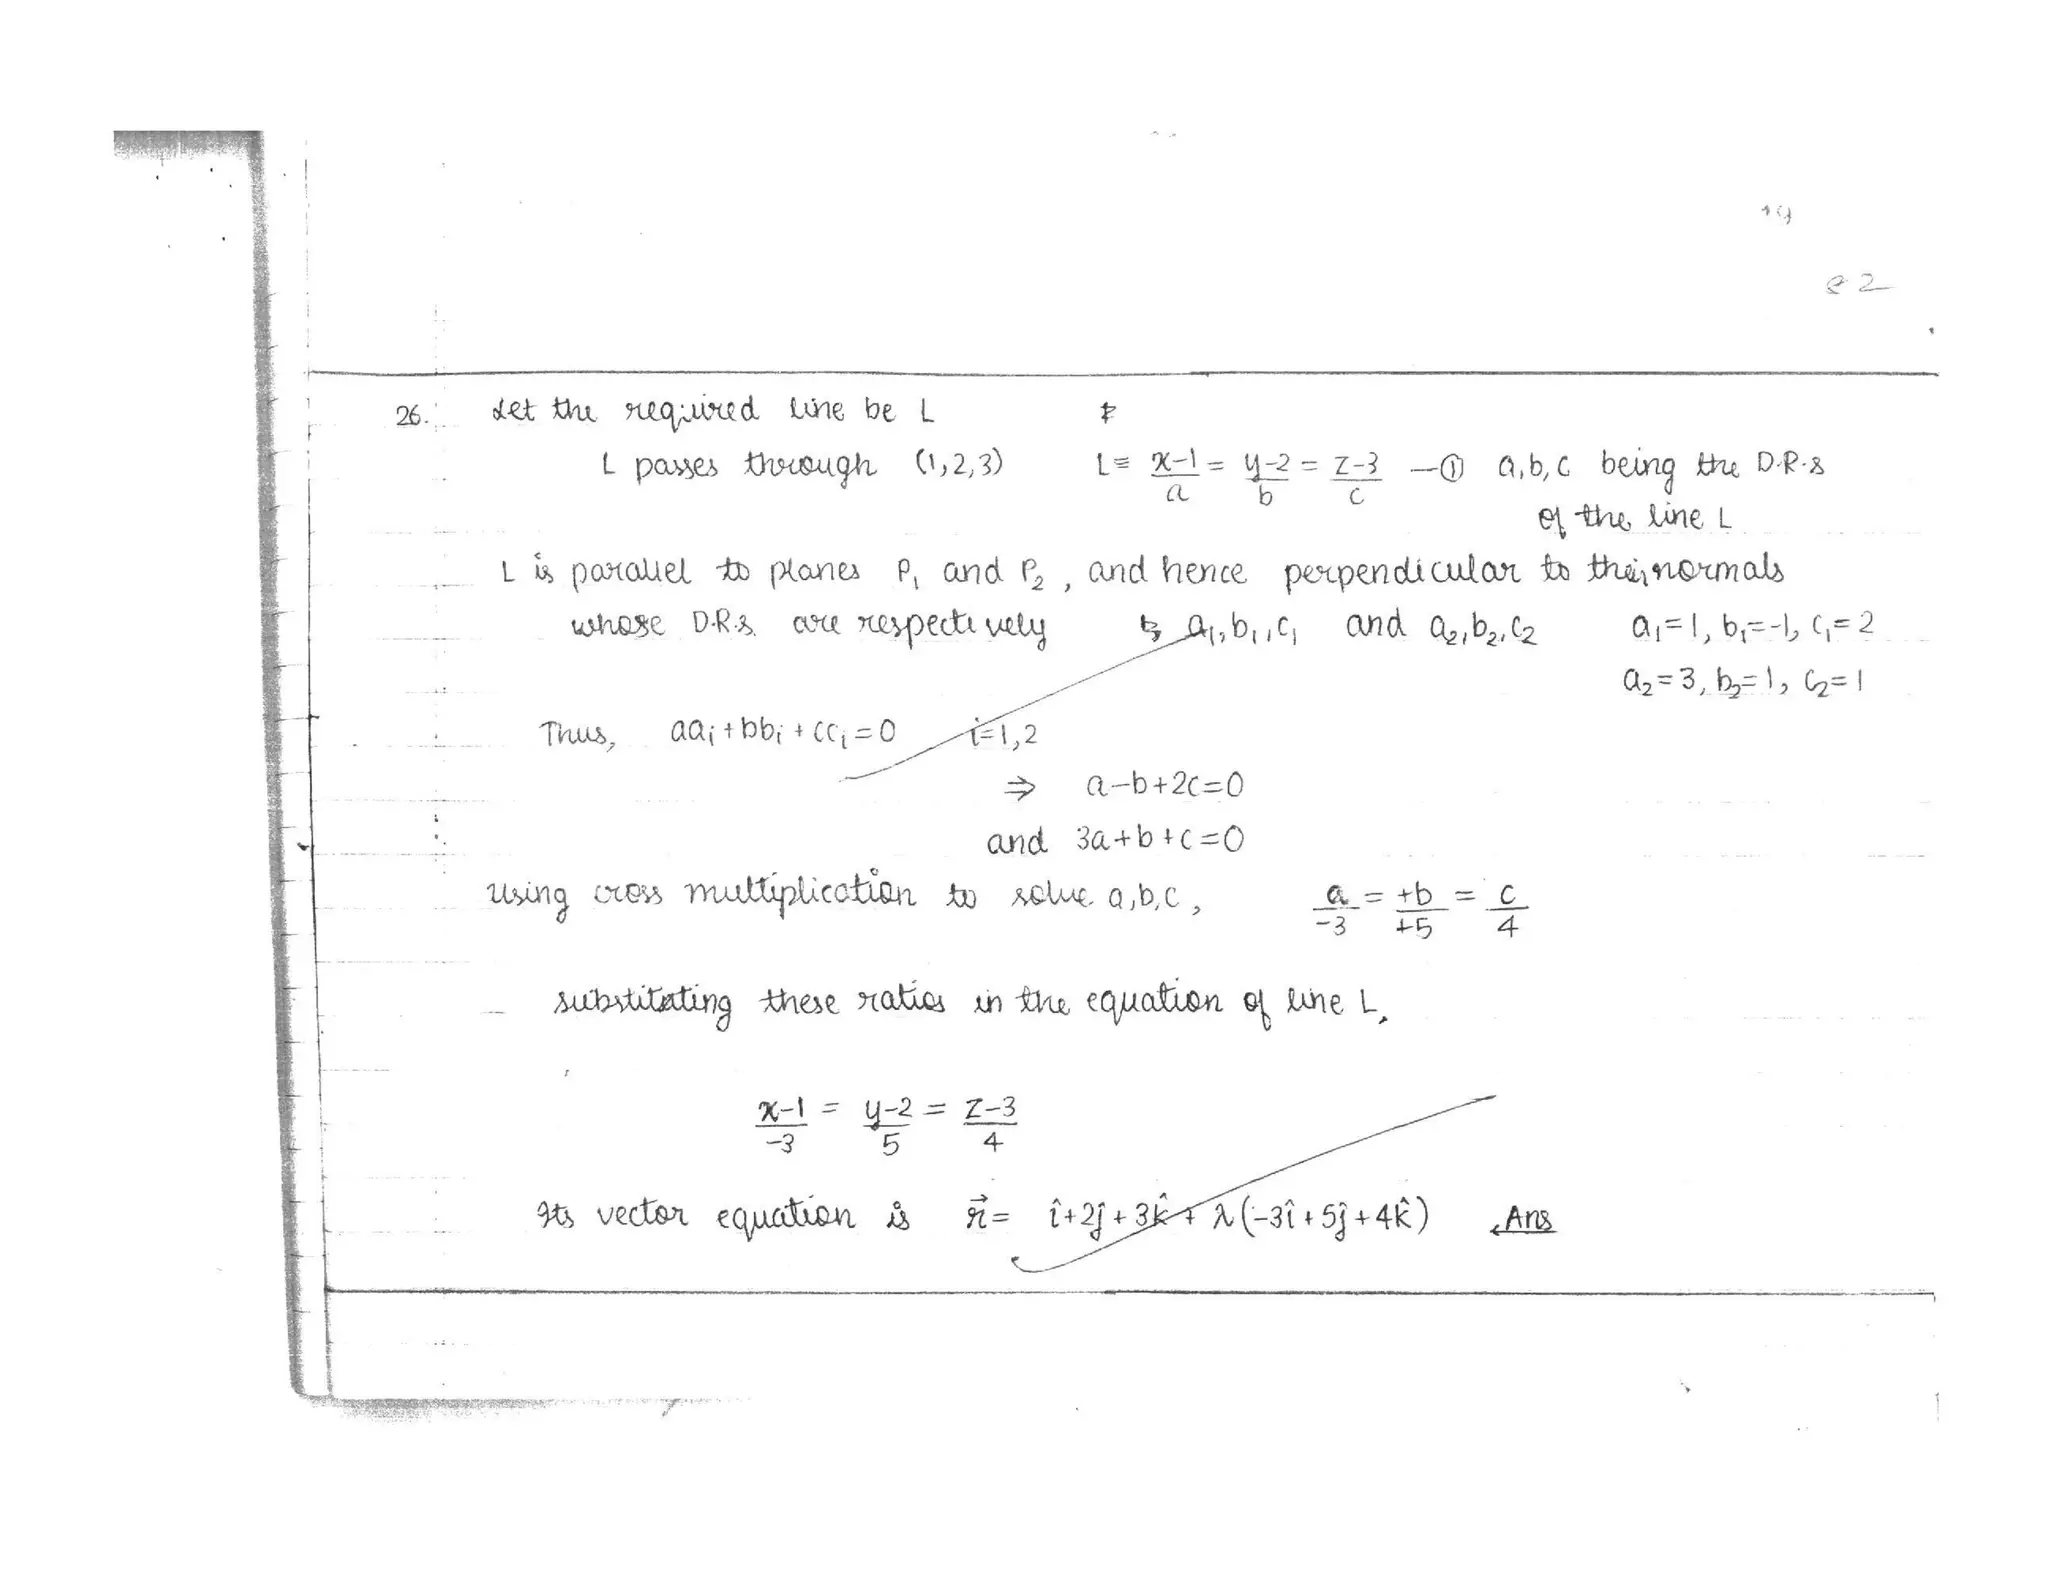 19
82
26. Let the required line be L
L passes through (1,2,3) L ≡ x-1/a = y-2/b = z-3/c —① a,b,c being the D.R.s
of the line L
L is parallel to planes P₁ and P₂, and hence perpendicular to their normals
whose D.R.s. are respectively a₁,b₁,c₁ and a₂,b₂,c₂ a₁=1, b₁=-1, c₁=2
a₂=3, b₂=1, c₂=1
Thus, aaᵢ+bbᵢ+ccᵢ=0 i=1,2
⇒ a-b+2c=0
and 3a+b+c=0
Using cross multiplication to solve a,b,c, a/-3 = +b/+5 = c/4
substituting these ratios in the equation of line L,
x-1/-3 = y-2/5 = z-3/4
Its vector equation is r⃗ = î+2ĵ+3k̂ + λ(-3î+5ĵ+4k̂) Ans